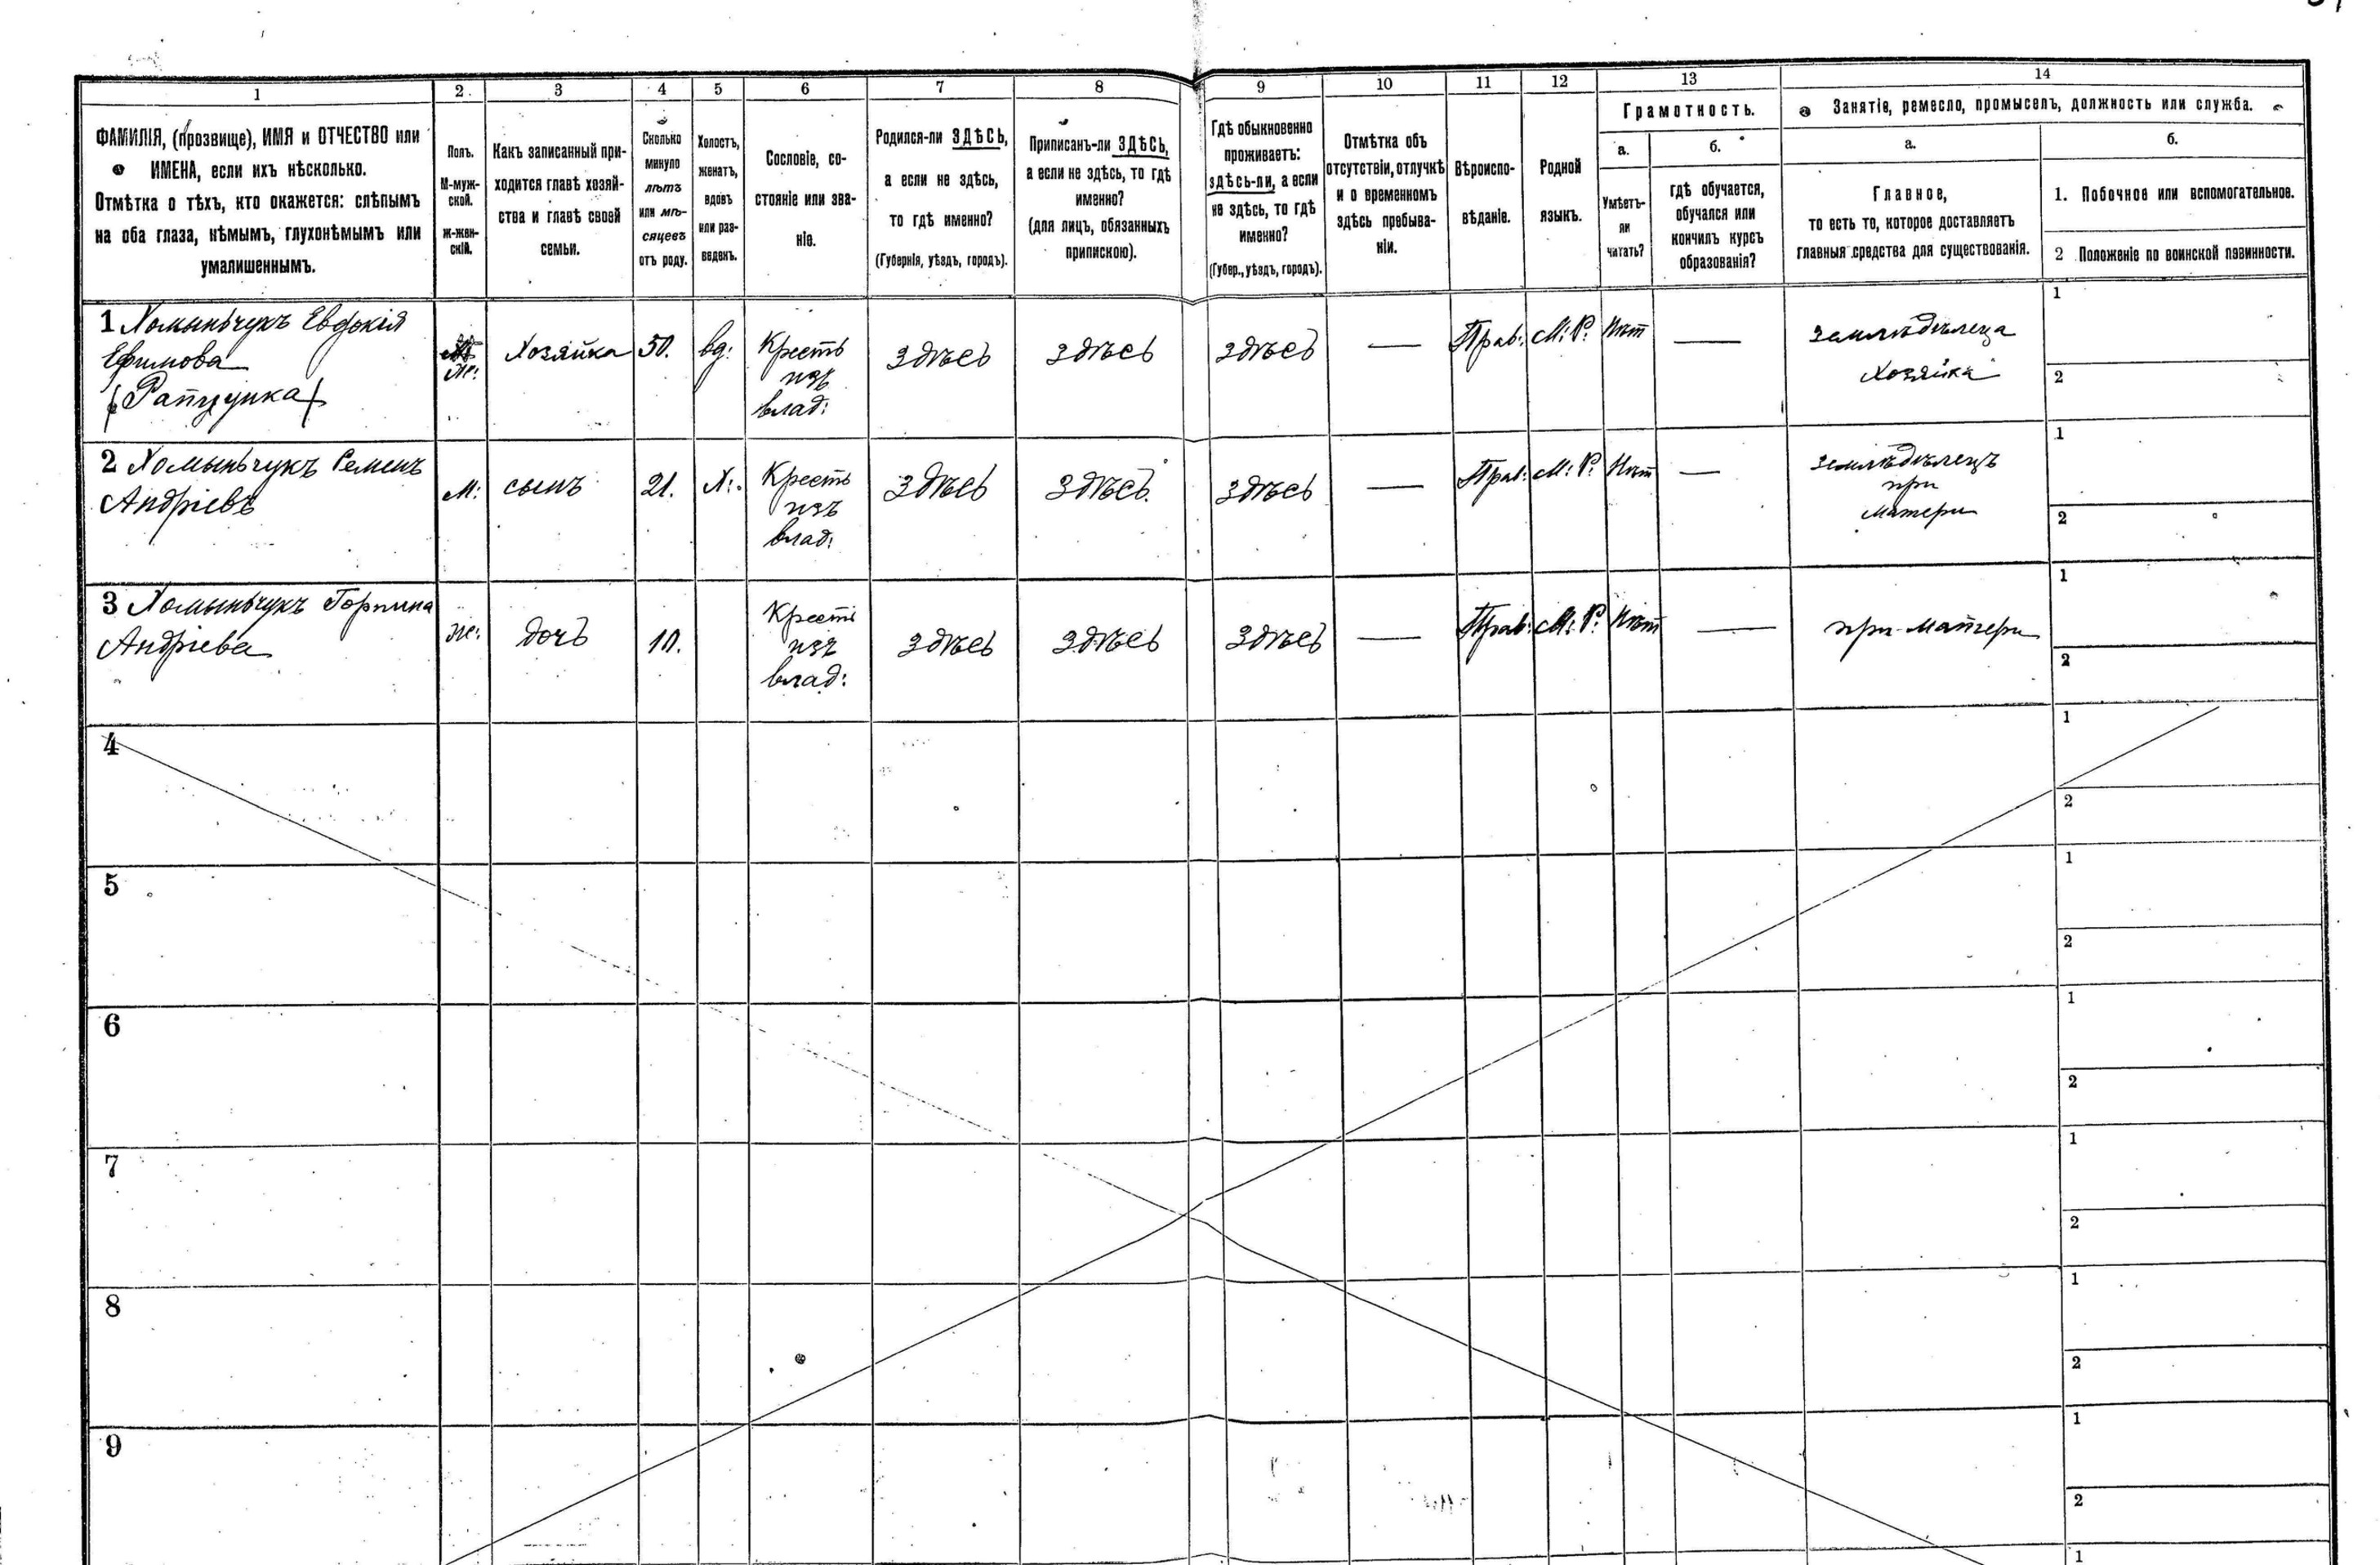 1 2 3 4 5 6 7 8 9 10 11 12 13 14
ФАМИЛІЯ, (прозвище), ИМЯ и ОТЧЕСТВО или
ИМЕНА, если ихъ нѣсколько.
Отмѣтка о тѣхъ, кто окажется: слѣпымъ
на оба глаза, нѣмымъ, глухонѣмымъ или
умалишеннымъ.
Полъ.
М-муж-
ской.
Ж-жен-
скій.
Какъ записанный при-
ходится главѣ хозяй-
ства и главѣ своей
семьи.
Сколько
минуло
лѣтъ
или мѣ-
сяцевъ
отъ роду.
Холостъ,
женатъ,
вдовъ
или раз-
веденъ.
Сословіе, со-
стояніе или зва-
ніе.
Родился-ли ЗДѢСЬ,
а если не здѣсь,
то гдѣ именно?
(Губернія, уѣздъ, городъ).
Приписанъ-ли ЗДѢСЬ,
а если не здѣсь, то гдѣ
именно?
(для лицъ, обязанныхъ
припискою).
Гдѣ обыкновенно
проживаетъ:
здѣсь-ли, а если
не здѣсь, то гдѣ
именно?
(Губер., уѣздъ, городъ).
Отмѣтка объ
отсутствіи, отлучкѣ
и о временномъ
здѣсь пребыва-
ніи.
Вѣроиспо-
вѣданіе.
Родной
языкъ.
Грамотность.
а.
Умѣетъ-
ли
читать?
б.
гдѣ обучается,
обучался или
кончилъ курсъ
образованія?
Занятіе, ремесло, промыселъ, должность или служба.
а.
Главное,
то есть то, которое доставляетъ
главныя средства для существованія.
б.
1. Побочное или вспомогательное.
2 Положеніе по воинской повинности.
1 Хоменьчукъ Евдокія
Ефимова
Же:
Хозяйка
50.
вд:
Кресть
изъ
влад:
здѣсь
здѣсь
здѣсь
—
Прав:
М: Р:
Нѣт
—
земледѣлеца
Хозяйка
1
2
2 Хоменьчукъ Семенъ
Андріевъ
М:
сынъ
21.
Х:
Кресть
изъ
влад:
здѣсь
здѣсь.
здѣсь
—
Прав:
М: Р:
Нѣт
—
земледѣлецъ
при
матери
1
2
3 Хоменьчукъ Горпина
Андріева
Же:
дочь
10.
Кресть
изъ
влад:
здѣсь
здѣсь
здѣсь
—
Прав:
М: Р:
Нѣт
—
при матери
1
2
4
1
2
5
1
2
6
1
2
7
1
2
8
1
2
9
1
2
1